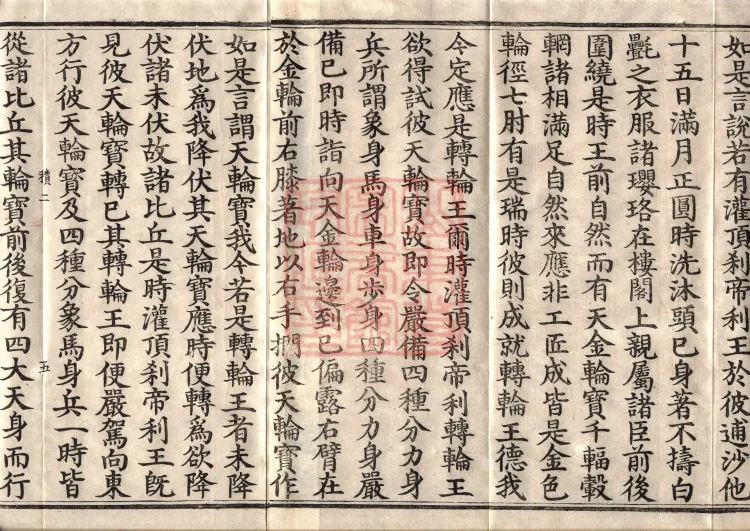 如是言說若有灌頂刹帝利王於彼逋沙他
十五日滿月正圓時洗沐頭已身著不擣白
㲲之衣服諸瓔珞在樓閣上親屬諸臣前後
圍繞是時王前自然而有天金輪寶千輻轂
輞諸相滿足自然來應非工匠成皆是金色
輪徑七肘有是瑞時彼則成就轉輪王德我
今定應是轉輪王爾時灌頂刹帝利轉輪王
欲得試彼天輪寶故即令嚴備四種分力身
兵所謂象身馬身車身步身四種分力身嚴
備已即時詣向天金輪邊到已偏露右臂在
於金輪前右膝著地以右手捫彼天輪寶作
如是言謂天輪寶我今若是轉輪王者未降
伏地爲我降伏其天輪寶應時便轉爲欲降
伏諸未伏故諸比丘是時灌頂刹帝利王旣
見彼天輪寶轉已其轉輪王即便嚴駕向東
方行彼天輪寶及四種分象馬身兵一時皆
積二
五
從諸比丘其輪寶前後復有四大天身而行